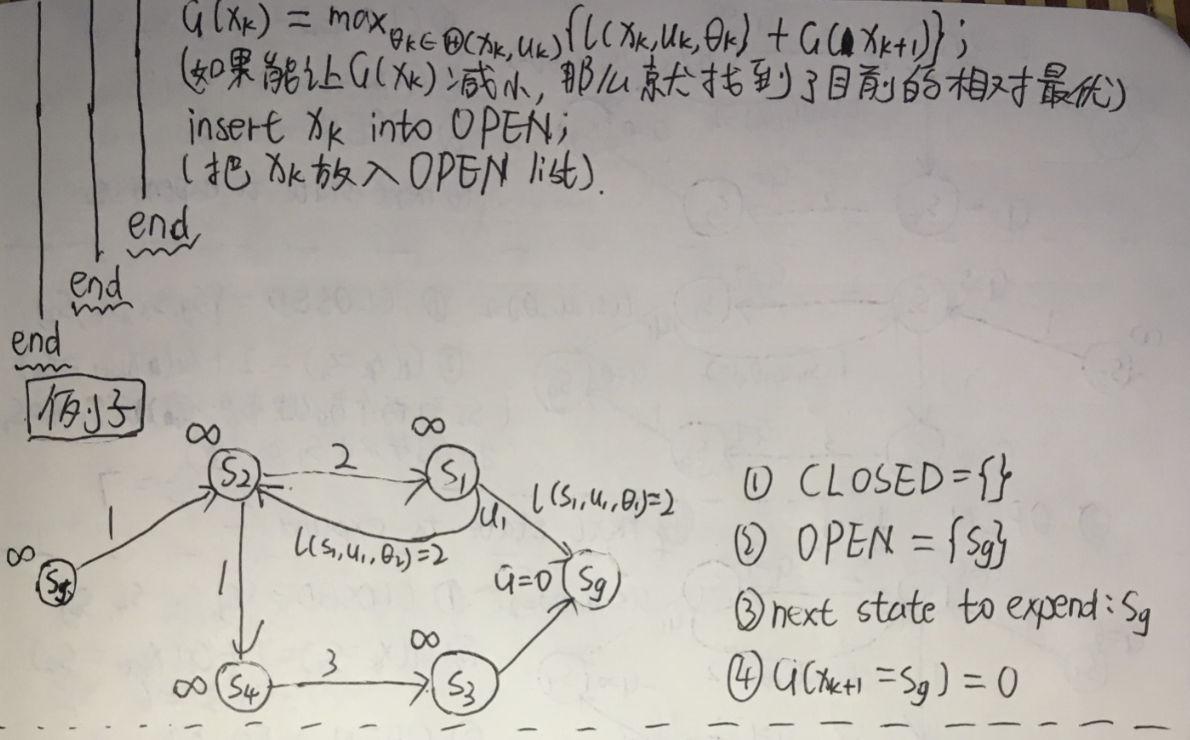 G(xₖ) = max_{θₖ∈Θ(xₖ,uₖ)}{l(xₖ,uₖ,θₖ) + G(xₖ₊₁)};
(如果能让G(xₖ)减小,那么就找到了目前的相对最优)
insert xₖ into OPEN;
(把xₖ放入OPEN list).
end
end
end
例子
∞
∞
S2
2
S1
l(S₁,u₁,θ₁)=2
u₁
1
l(S₁,u₁,θ₂)=2
∞
1
G=0
Sg
∞
∞
S4
3
S3
① CLOSED={}
② OPEN = {Sg}
③ next state to expend: Sg
④ G(xₖ₊₁ = Sg) = 0